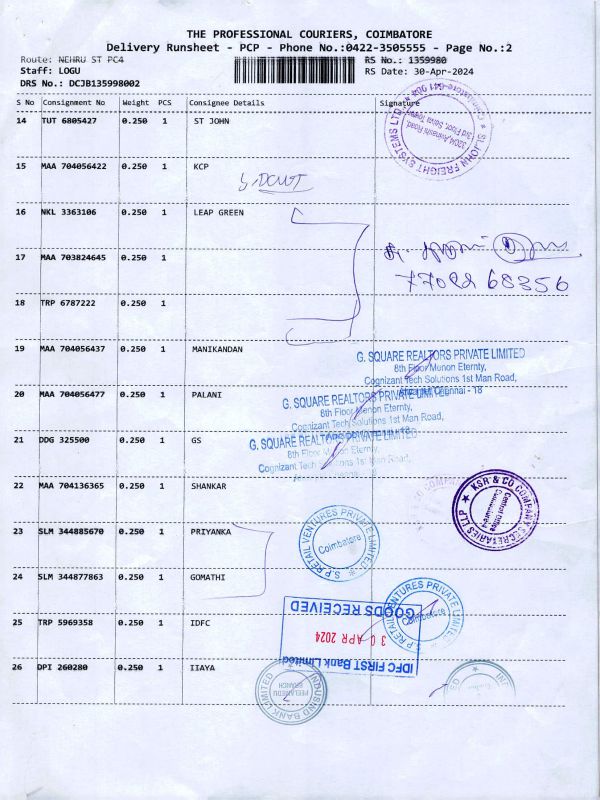 THE PROFESSIONAL COURIERS, COIMBATORE
Delivery Runsheet - PCP - Phone No.:0422-3505555 - Page No.:2
Route: NEHRU ST PC4 RS No.: 1359980
Staff: LOGU RS Date: 30-Apr-2024
DRS No.: DCJB135998002
S No Consignment No Weight PCS Consignee Details Signature
14 TUT 6805427 0.250 1 ST JOHN
SIJOHN FREIGHT SYSTEMS LTD
3rd Floor,
15 MAA 704056422 0.250 1 KCP
16 NKL 3363106 0.250 1 LEAP GREEN
17 MAA 703824645 0.250 1
77082 68356
18 TRP 6787222 0.250 1
19 MAA 704056437 0.250 1 MANIKANDAN
G. SQUARE REALTORS PRIVATE LIMITED
8th Floor Menon Eternty,
Cognizant Tech Solutions 1st Man Road,
Chennai - 18
20 MAA 704056477 0.250 1 PALANI
G. SQUARE REALTORS PRIVATE LIMITED
8th Floor Menon Eternty,
Cognizant Tech Solutions 1st Man Road,
21 DDG 325500 0.250 1 GS
G. SQUARE REALTORS PRIVATE LIMITED
8th Floor Menon Eternty,
Cognizant Tech Solutions 1st Man Road,
22 MAA 704136365 0.250 1 SHANKAR
KSR & CO COMPANY SECRETARIES LLP
23 SLM 344885670 0.250 1 PRIYANKA
S.P RETAIL VENTURES PRIVATE LIMITED
Coimbatore
24 SLM 344877863 0.250 1 GOMATHI
S.P RETAIL VENTURES PRIVATE LIMITED
Coimbatore
25 TRP 5969358 0.250 1 IDFC
IDFC FIRST Bank Limited
30 APR 2024
GOODS RECEIVED
26 DPI 260280 0.250 1 IIAYA
INDUSIND BANK LIMITED